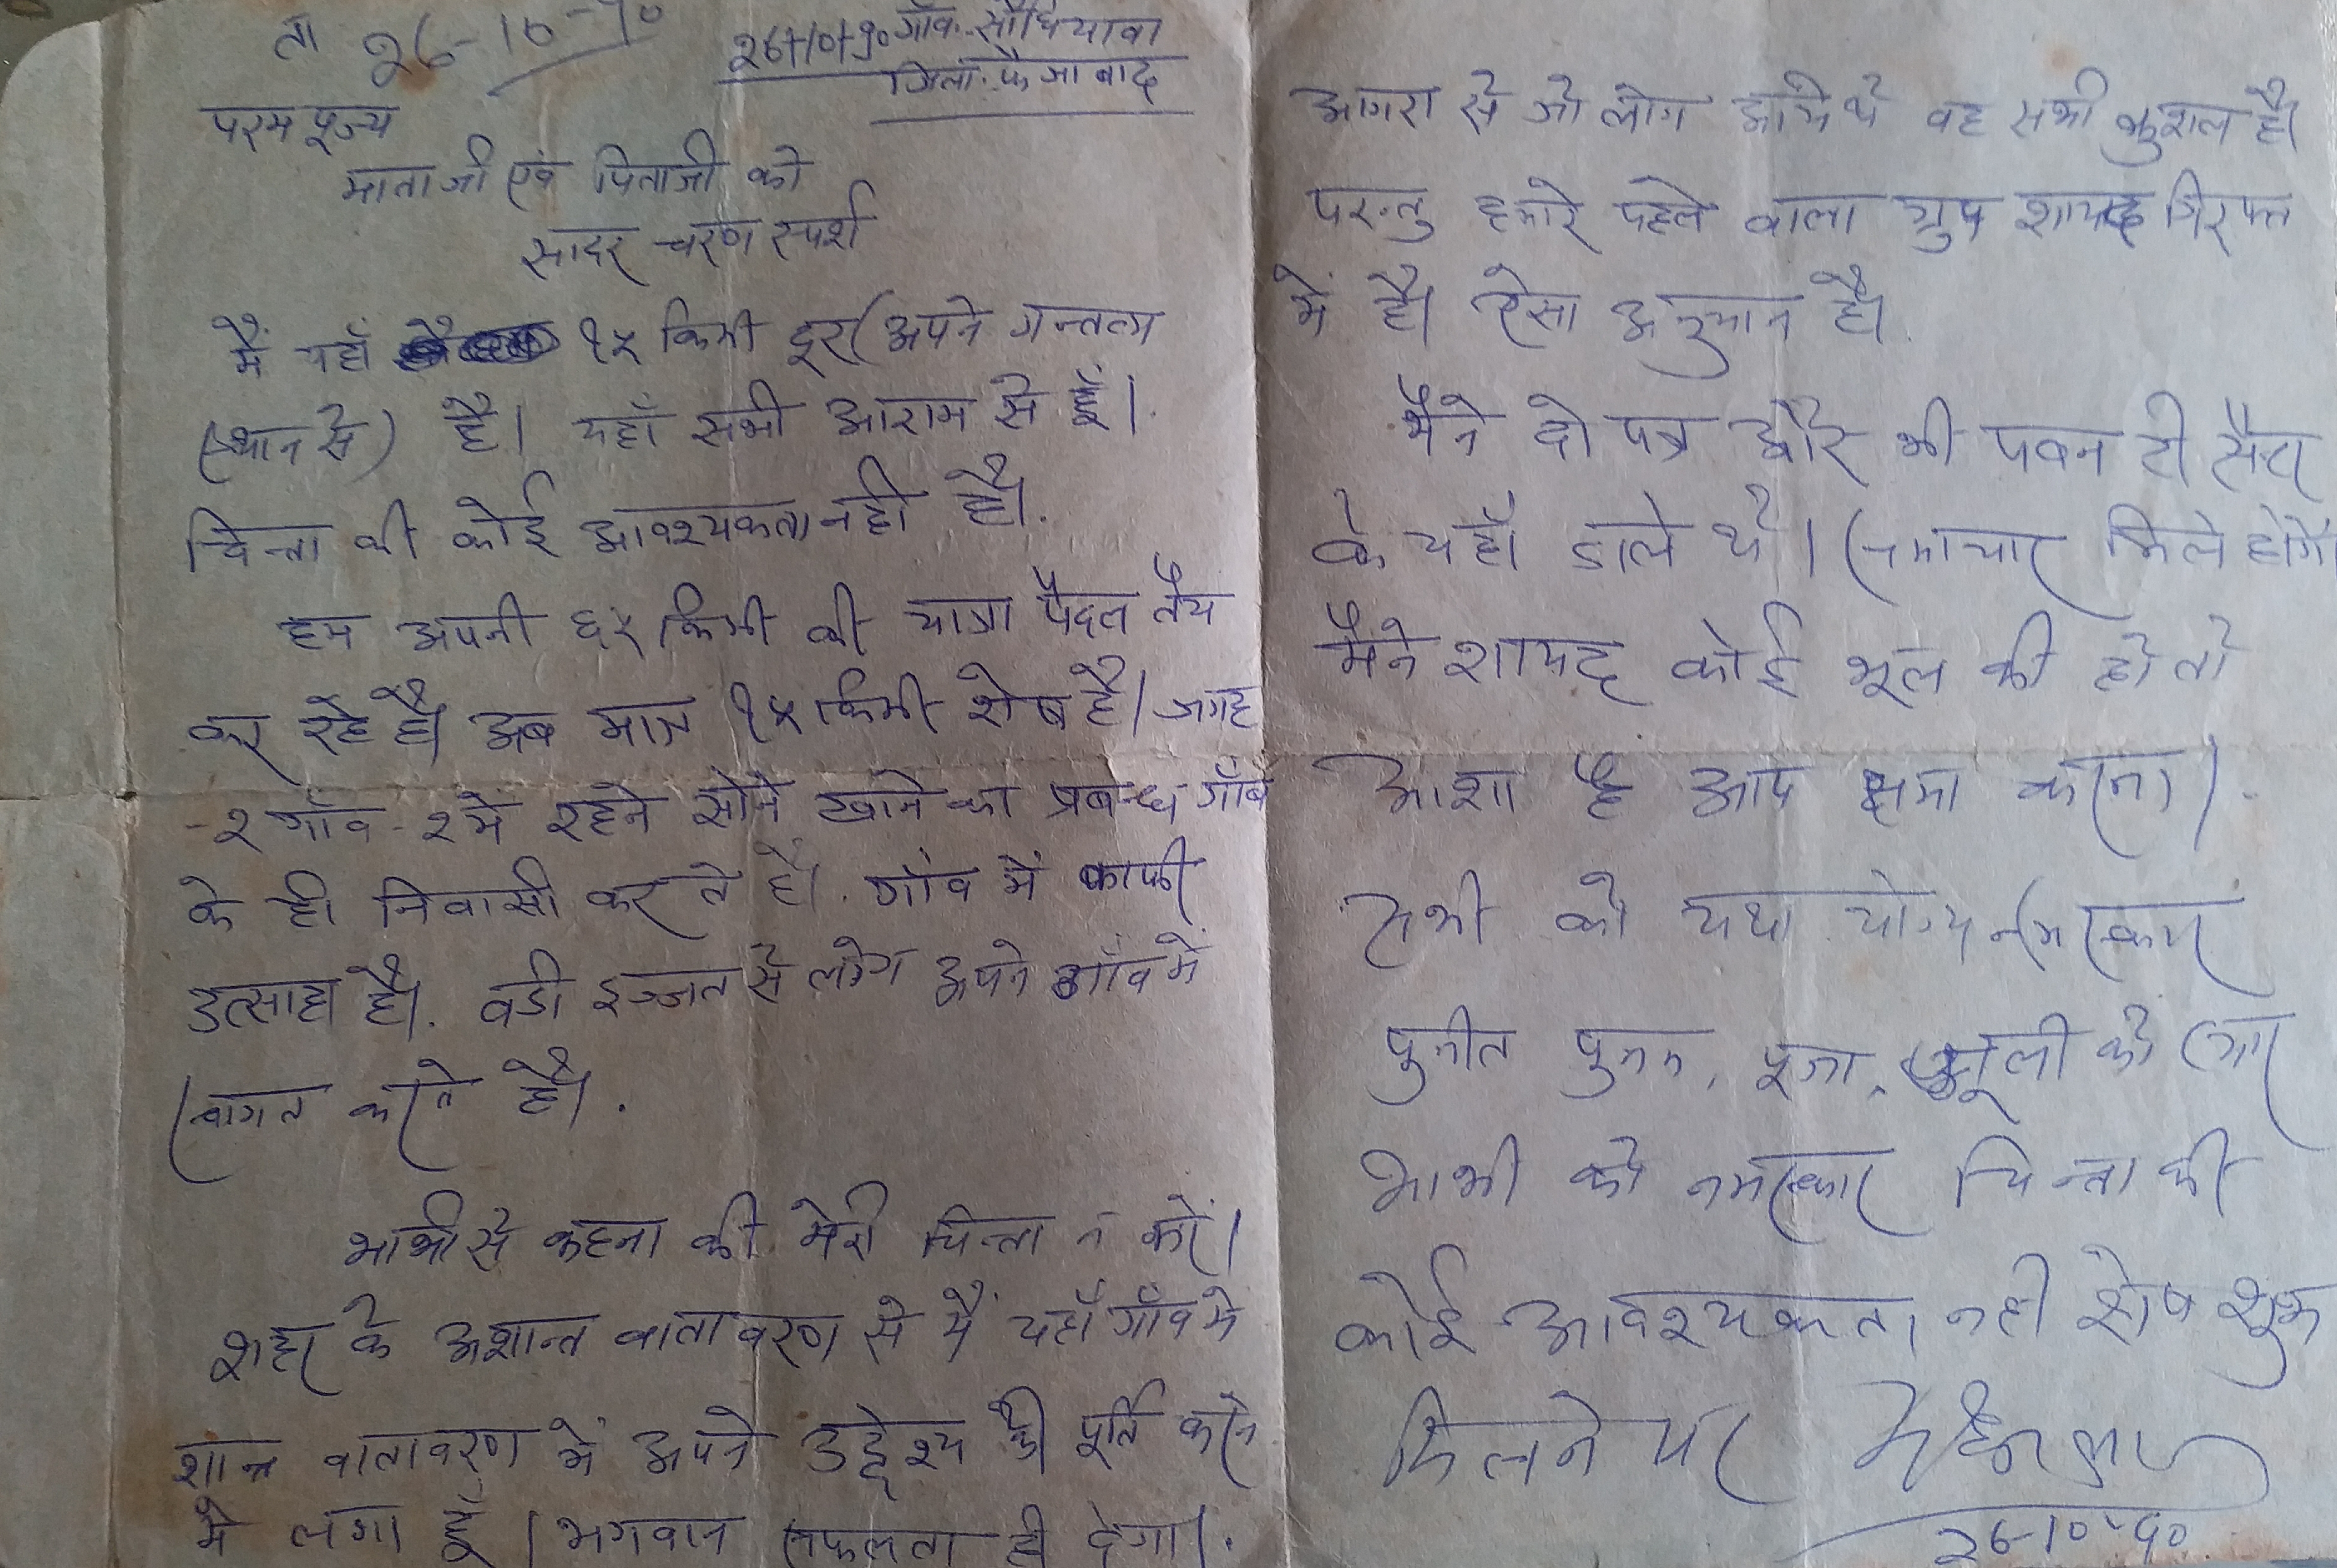 ता 26-10-90
26+10+90 गाँव-सौधियावा
जिला-फैजाबाद
परम पूज्य
माताजी एवं पिताजी को
सादर चरण स्पर्श
मैं यहाँ १५ किमी दूर (अपने गन्तव्य
(स्थान से) है। यहाँ सभी आराम से हैं।
चिन्ता की कोई आवश्यकता नही है।
हम अपनी ६५ किमी की यात्रा पैदल तैय
कर रहे है। अब मात्र १५ किमी शेष है। जगह
-२ गाँव-२ में रहने सोने खाने का प्रबन्ध गाँव
के ही निवासी करते है। गाँव में काफी
उत्साह है। बडी इज्जत से लोग अपने गाँव मे
स्वागत करते है।
भाभी से कहना की मेरी चिन्ता न करें।
शहर के अशान्त वातावरण से मैं यहाँ गाँव मे
शान्त वातावरण में अपने उद्देश्य की पूर्ति करने
मे लगा हूँ। भगवान सफलता ही देगा।
आगरा से जो लोग आये थे वह सभी कुशल है।
परन्तु हमारे पहले वाला ग्रुप शायद गिरफ्त
में है। ऐसा अनुमान है।
मैंने दो पत्र और भी पवन टी सैन्टर
के यहाँ डाले थे। समाचार मिले होगें।
मैंने शायद कोई भूल की हो तो
आशा है आप क्षमा करना।
सभी को यथा योग्य नमस्कार
पुनीत पुनम, पूजा, को प्यार
भाभी को नमस्कार चिन्ता की
कोई आवश्यकता नही शेष शुभ
मिलने पर
26-10-90